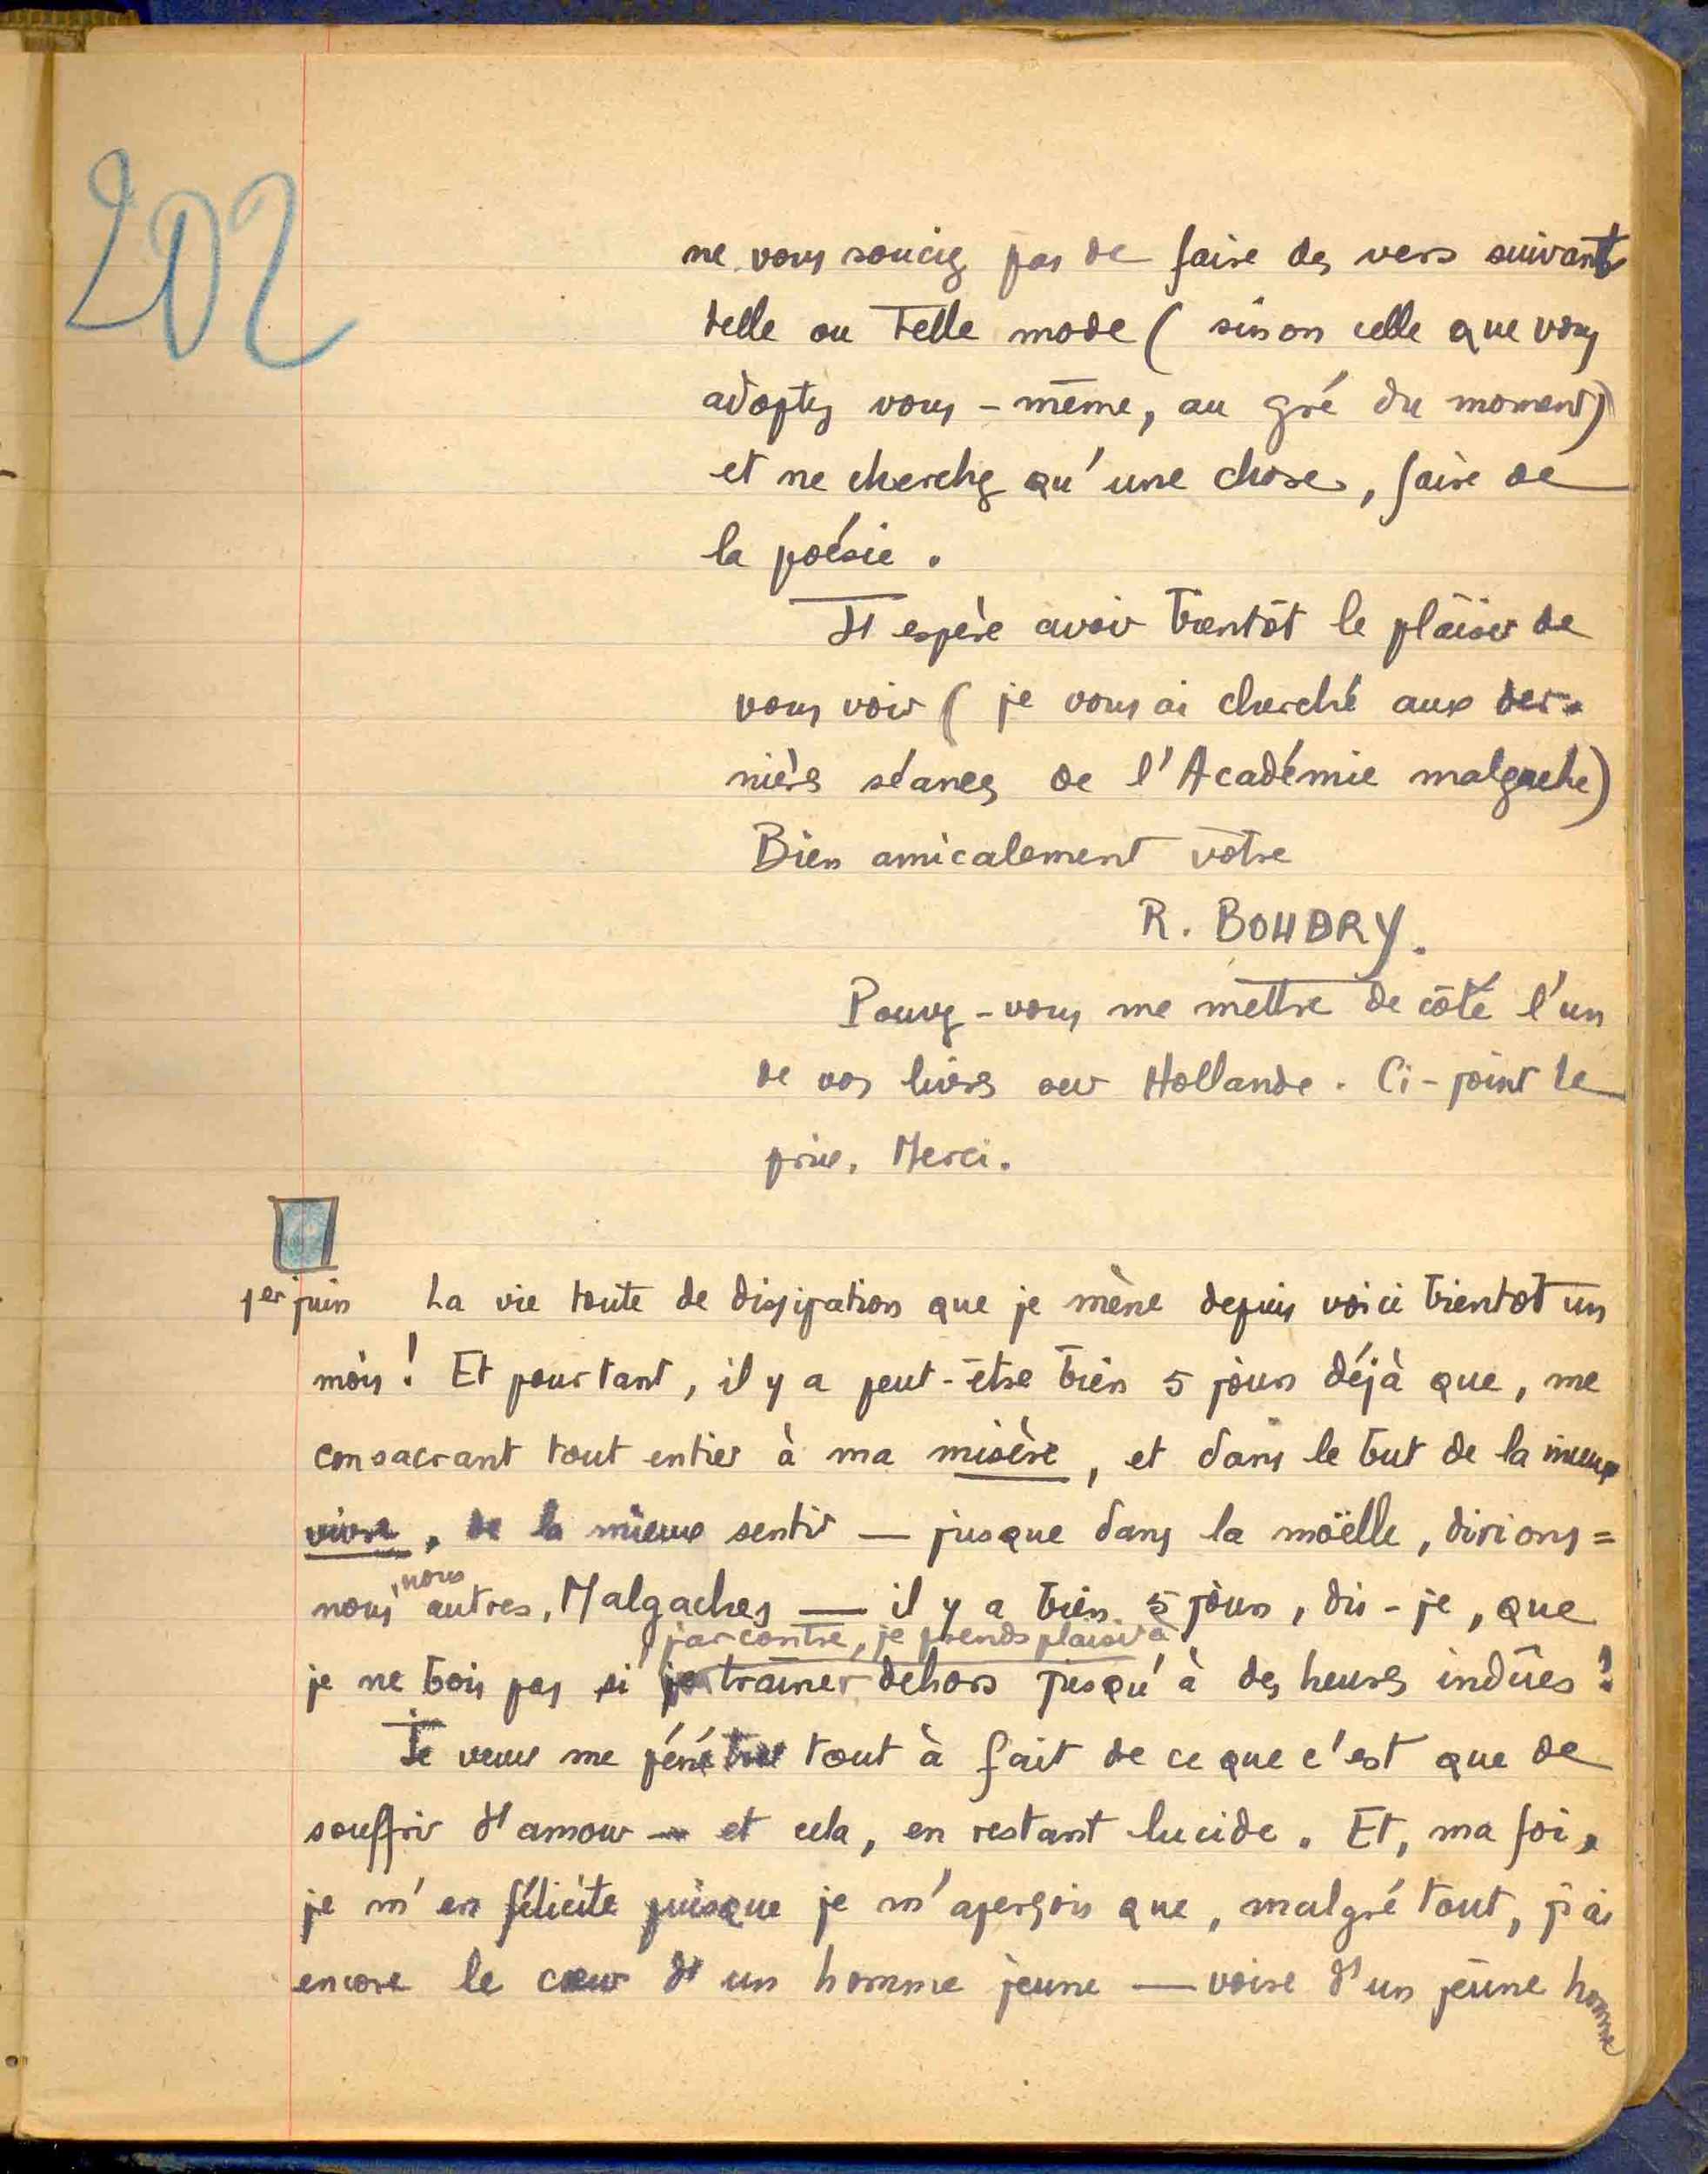 202
ne vous souciez pas de faire des vers suivant
telle ou telle mode (sinon celle que vous
adoptez vous-même, au gré du moment)
et ne cherchez qu'une chose, faire de
la poésie.
J'espère avoir bientôt le plaisir de
vous voir (je vous ai cherché aux der-
nières séances de l'Académie malgache)
Bien amicalement vôtre
R. BOUDRY.
Pouvez-vous me mettre de côté l'un
de vos livres sur Hollande. Ci-joint le
prix. Merci.
1er juin La vie toute de dissipation que je mène depuis voici bientôt un
mois! Et pourtant, il y a peut-être bien 5 jours déjà que, me
consacrant tout entier à ma misère, et dans le but de la mieux
vivre, de la mieux sentir — jusque dans la moëlle, dirions=
nous, nous autres, Malgaches — il y a bien 5 jours, dis-je, que
par contre, je prends plaisir à
je ne bois pas si traîner dehors jusqu'à des heures indûes!
Je veux me pénétrer tout à fait de ce que c'est que de
souffrir d'amour — et cela, en restant lucide. Et, ma foi,
je m'en félicite puisque je m'aperçois que, malgré tout, j'ai
encore le cœur d'un homme jeune — voire d'un jeune homme